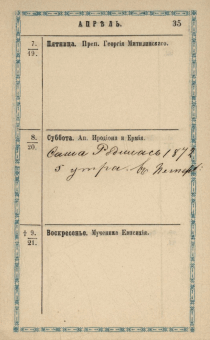 АПРѢЛЬ. 35
7.
19.
Пятница. Преп. Георгія Митилинскаго.
8.
20.
Суббота. Ап. Иродіона и Ермія.
Саша Родилась 1872
5 утра. въ Петерб
† 9.
21.
Воскресенье. Мученика Евпсихія.